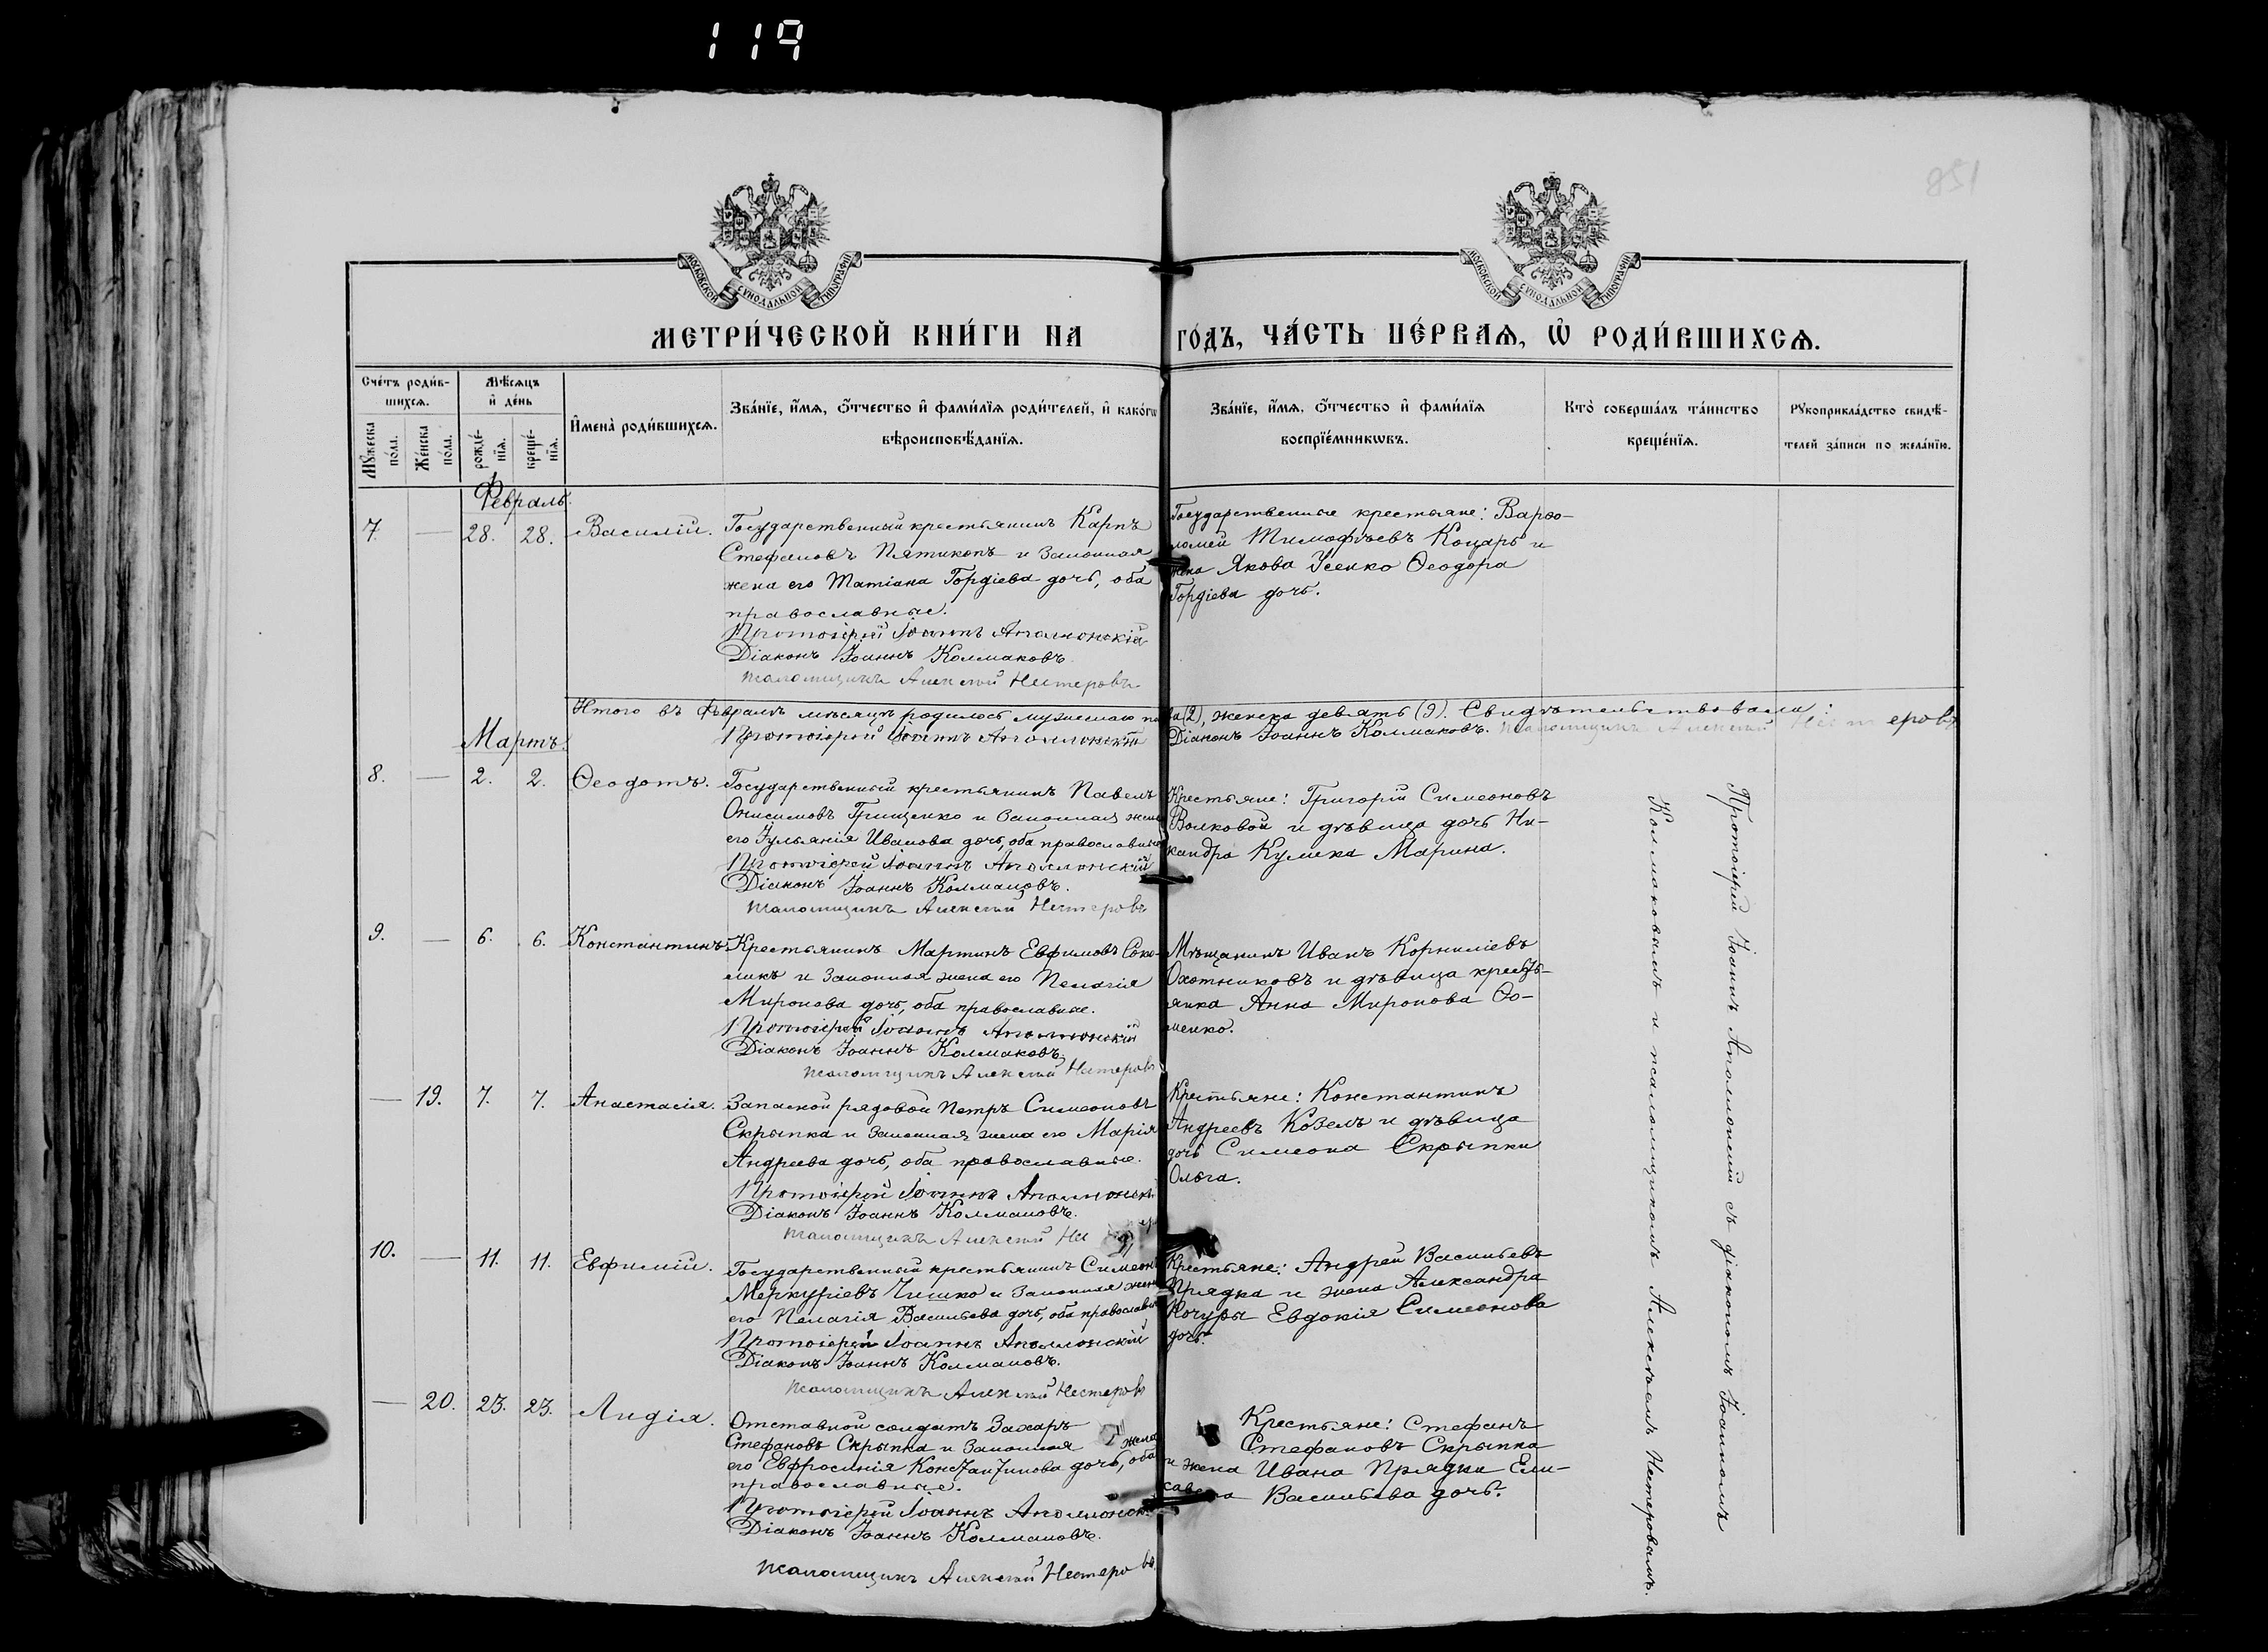 119
851
МОСКОВСКОЙ СУНОДАЛЬНОЙ ТИПОГРАФІИ
МОСКОВСКОЙ СУНОДАЛЬНОЙ ТИПОГРАФІИ
МЕТРИ́ЧЕСКОЙ КНИ́ГИ НА ГО́ДЪ, ЧА́СТЬ ПЕ́РВАѦ, Ѽ РОДИ́ВШИХСѦ.
Сче́тъ роди́в-
шихсѧ.
Мꙋ́жеска
по́ла.
Же́нска
по́ла.
Мѣ́сѧцъ
и҆ де́нь
рожде́-
нїѧ.
креще́-
нїѧ.
И҆мена̀ роди́вшихсѧ.
Зва́нїе, и҆́мѧ, ѻ҆́тчество и҆ фами́лїѧ роди́телей, и҆ како́гѡ
вѣроисповѣ́данїѧ.
Зва́нїе, и҆́мѧ, ѻ҆́тчество и҆ фами́лїѧ
воспрїе́мникѡвъ.
Кто̀ соверша́лъ та́инство
креще́нїѧ.
Рꙋкоприкла́дство свидѣ́-
телей за́писи по жела́нїю.
Февраль.
7. — 28. 28. Василій.
Государственный крестьянинъ Карпъ
Стефановъ Пятикопъ и законная
жена его Татіана Гордіева дочь, оба
православные.
Протоіерей Іоаннъ Аполлонскій
Діаконъ Іоаннъ Колмаковъ.
Псаломщикъ Алексій Нестеровъ
Государственные крестьяне: Варѳо-
ломей Тимофѣевъ Коцарь и
жена Якова Усенко Ѳеодора
Гордіева дочь.
Итого въ Февралѣ мѣсяцѣ родилось мужескаго по два (2), женска девять (9). Свидѣтельствовали:
Протоіерей Іоаннъ Аполлонскій Діаконъ Іоаннъ Колмаковъ. Псаломщикъ Алексій Нестеровъ
Мартъ.
8. — 2. 2. Ѳеодотъ.
Государственный крестьянинъ Павелъ
Онисимовъ Грищенко и законная жена
его Іульянія Иванова дочь, оба православные
Протоіерей Іоаннъ Аполлонскій
Діаконъ Іоаннъ Колмаковъ.
Псаломщикъ Алексій Нестеровъ
Крестьяне: Григорій Симеоновъ
Волковой и дѣвица дочь Ни-
кандра Кулика Марина.
9. — 6. 6. Константинъ.
Крестьянинъ Мартинъ Евфимовъ Соко-
ликъ и законная жена его Пелагія
Миронова дочь, оба православные.
Протоіерей Іоаннъ Аполлонскій
Діаконъ Іоаннъ Колмаковъ
Псаломщикъ Алексій Нестеровъ
Мѣщанинъ Иванъ Корниліевъ
Охотниковъ и дѣвица кресть-
янка Анна Миронова Ѳо-
менко.
— 19. 7. 7. Анастасія.
Запасной рядовой Петръ Симеоновъ
Скрыпка и законная жена его Марія
Андреева дочь, оба православные.
Протоіерей Іоаннъ Аполлонскі
Діаконъ Іоаннъ Колмаковъ.
Псаломщикъ Алексій Не
Крестьяне: Константинъ
Андреевъ Козелъ и дѣвица
дочь Симеона Скрыпки
Ольга.
10. — 11. 11. Евфимій.
Государственный крестьянинъ Симеонъ
Меркуріевъ Чишко и законная жена
его Пелагія Васильева дочь, оба православн
Протоіерей Іоаннъ Аполлонскій
Діаконъ Іоаннъ Колмаковъ.
Псаломщикъ Алексій Нестеровъ
Крестьяне: Андрей Васильевъ
Прядка и жена Александра
Кочуры Евдокія Симеонова
дочь.
— 20. 23. 23. Лидія.
Отставной солдатъ Захаръ
Стефановъ Скрыпка и законная жена
его Евфросинія Константинова дочь, оба
православные.
Протоіерей Іоаннъ Аполлонск
Діаконъ Іоаннъ Колмаковъ.
Псаломщикъ Алексій Нестеровъ
Крестьяне: Стефанъ
Стефановъ Скрыпка
и жена Ивана Прядки Ели-
савета Васильева дочь.
Протоіерей Іоаннъ Аполлонскій съ діакономъ Іоанномъ
Колмаковымъ и псаломщикомъ Алексѣемъ Нестеровымъ.